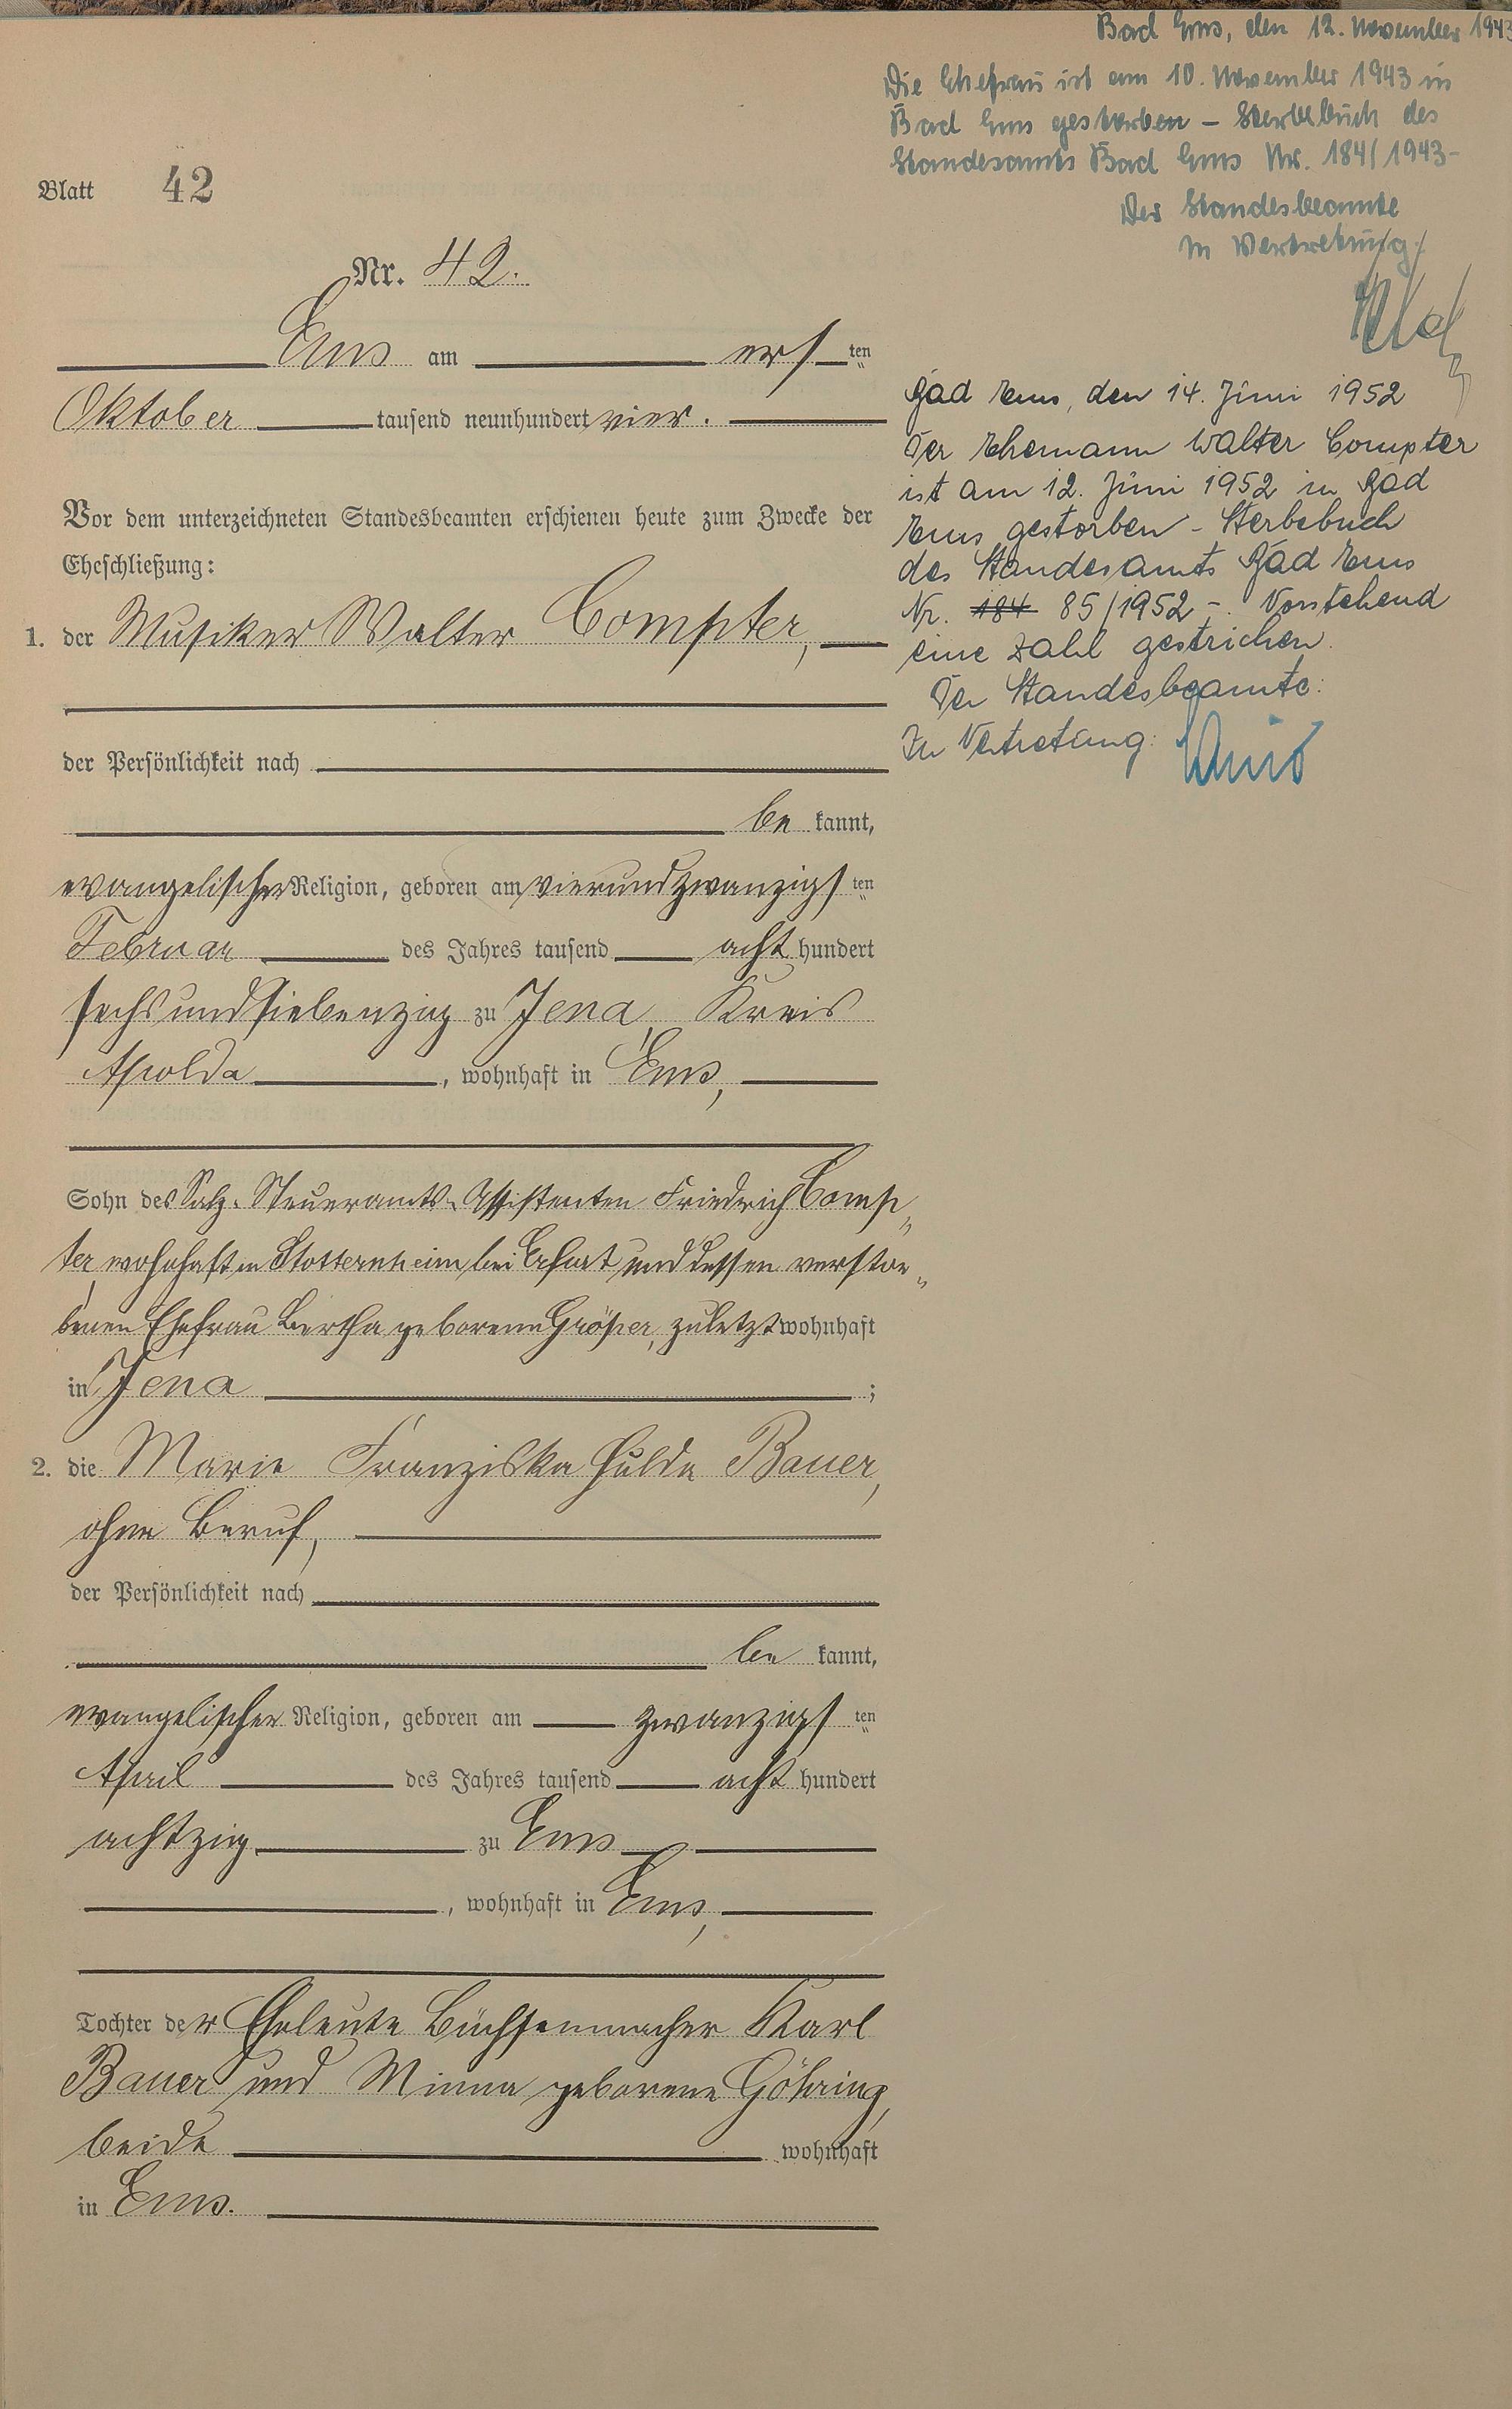 Blatt 42
Nr. 42.
Ems am ersten
Oktober tausend neunhundert vier.
Vor dem unterzeichneten Standesbeamten erschienen heute zum Zwecke der
Eheschließung:
1. der Musiker Walter Compter,
der Persönlichkeit nach
be kannt,
evangelischer Religion, geboren am vierundzwanzigsten
Februar des Jahres tausend acht hundert
sechsundsiebenzig zu Jena, Kreis
Apolda, wohnhaft in Ems,
Sohn des Salz-Steueramts-Assistenten Friedrich Comp„
ter, wohnhaft in Stotternheim bei Erfurt und dessen verstor„
benen Ehefrau Bertha geborene Größer, zuletzt wohnhaft
in Jena ;
2. die Marie Franziska Hulda Bauer,
ohne Beruf,
der Persönlichkeit nach
be kannt,
evangelischer Religion, geboren am zwanzigsten
April des Jahres tausend acht hundert
achtzig zu Ems
, wohnhaft in Ems,
Tochter der Eheleute Büchsenmacher Karl
Bauer und Minna geborene Göhring,
beide wohnhaft
in Ems.
Bad Ems, den 12. November 1943
Die Ehefrau ist am 10. November 1943 in
Bad Ems gestorben – Sterbebuch des
Standesamts Bad Ems Nr. 184/1943 –
Der Standesbeamte
In Vertretung:
Bad Ems, den 14. Juni 1952
Der Ehemann Walter Compter
ist am 12. Juni 1952 in Bad
Ems gestorben – Sterbebuch
des Standesamts Bad Ems
Nr. 184 85/1952 –. Vorstehend
eine Zahl gestrichen.
Der Standesbeamte:
In Vertretung: